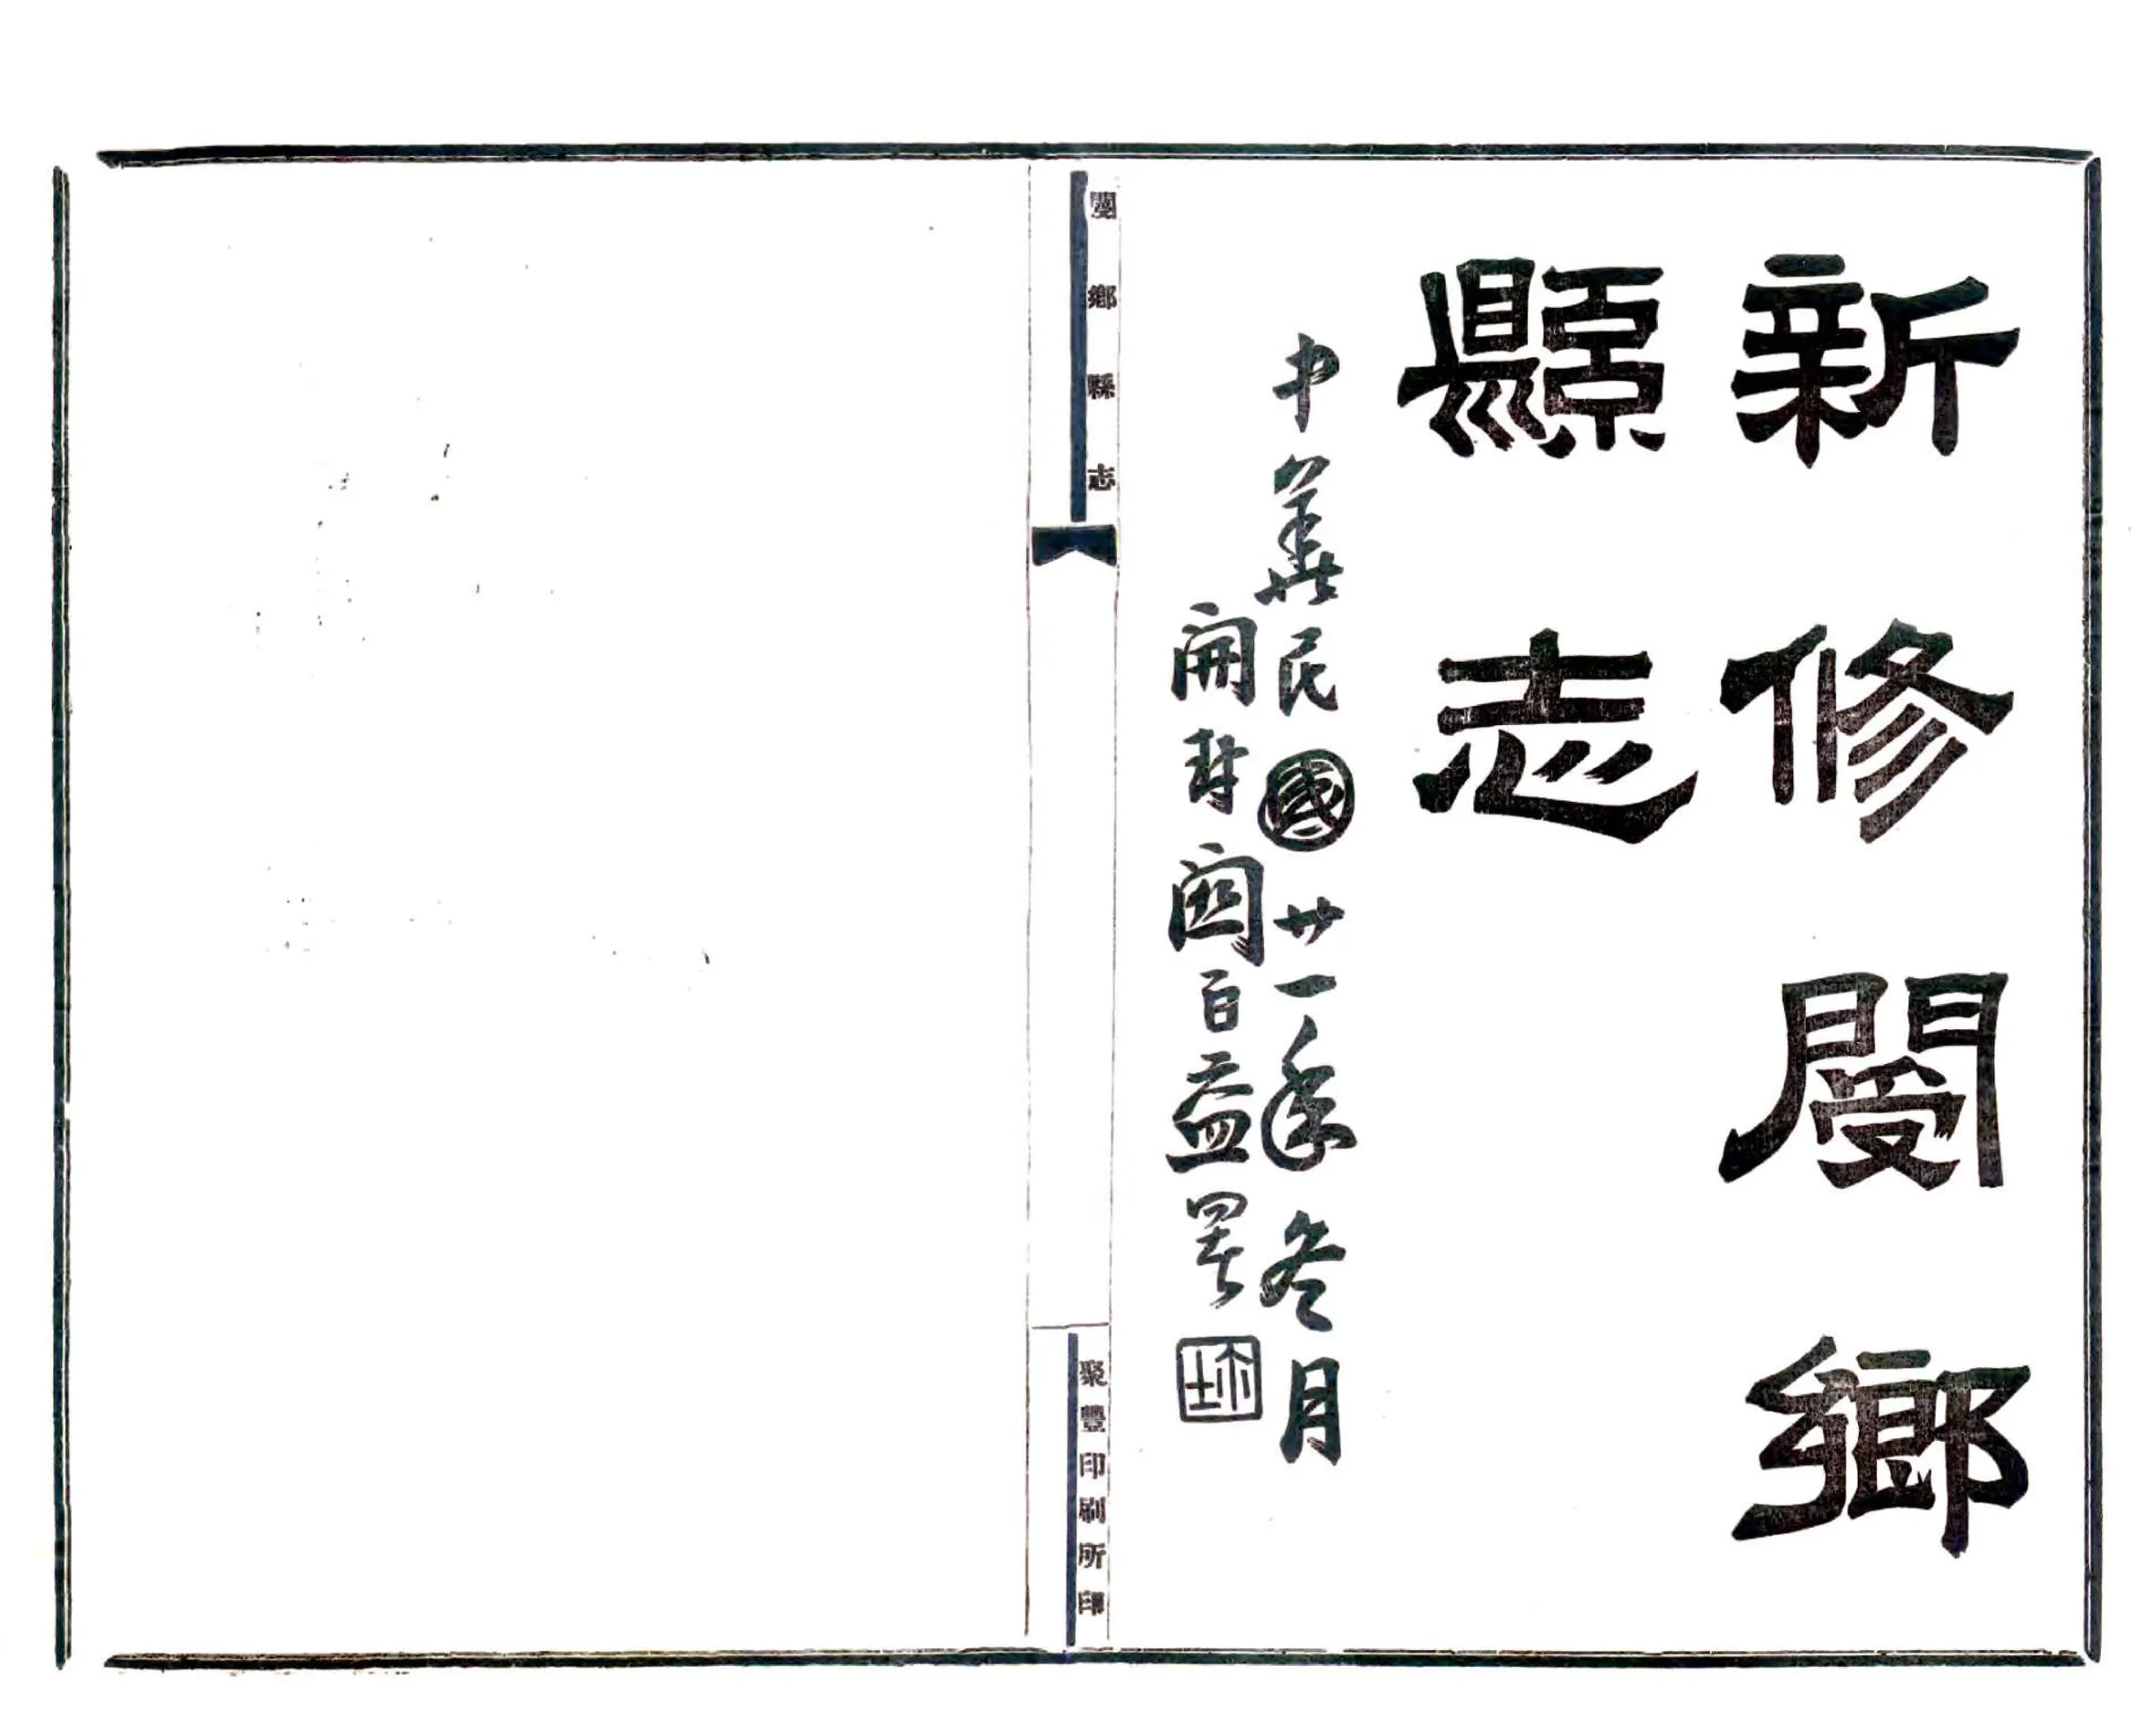 新修閿鄉
縣志
中華民國廿一年冬月
開封關百益署
閿鄉縣志
聚豐印刷所印